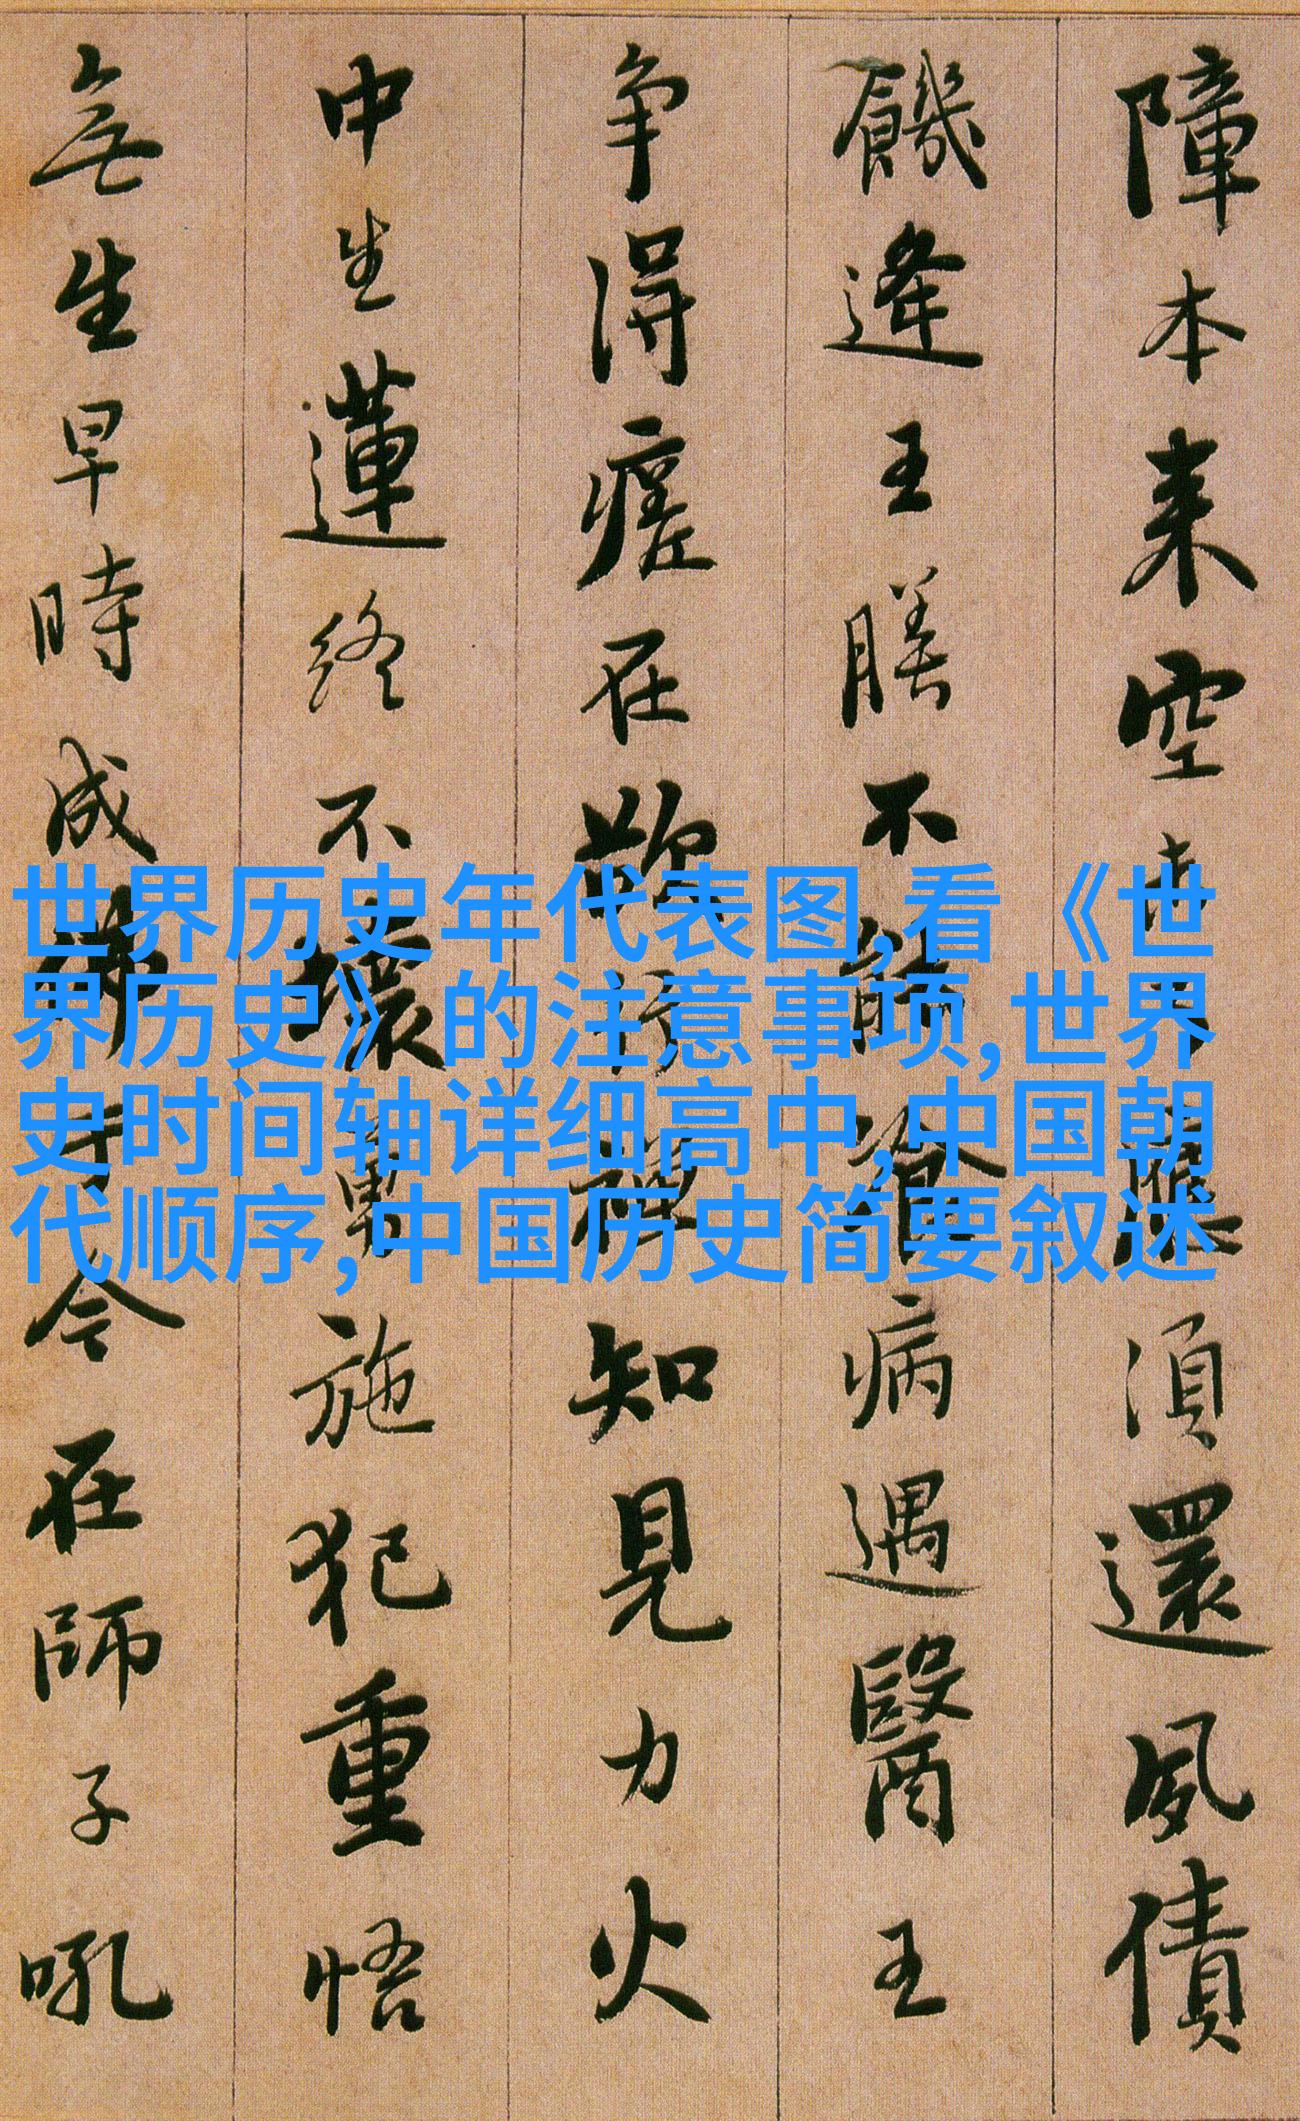 障本来空應須還夙債
饑逢王膳不能飡病遇醫王
争得瘥在欲行禪知見力火
中生蓮終不壞勇施犯重悟
無生早時成佛于今在師子吼
世界历史年代表图,看《世
界历史》的注意事项,世界
史时间轴详细高中,中国朝
代顺序,中国历史简要叙述